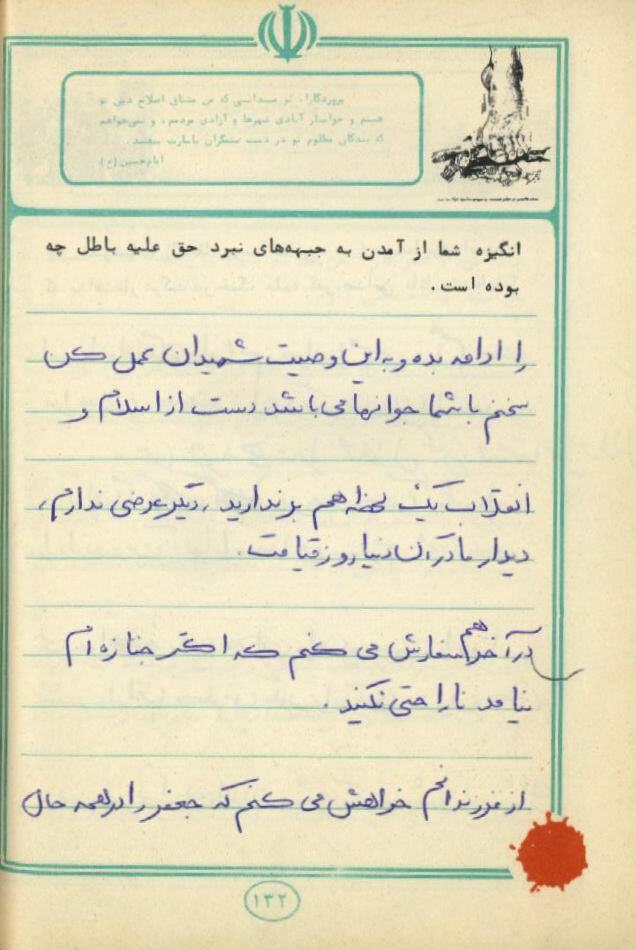 پروردگارا، تو میدانی که من مشتاق اصلاح دین تو
هستم و خواستار آبادی شهرها و آزادی مردمم، و نمی‌خواهم
که بندگان مظلوم تو در دست ستمگران باسارت بیفتند.
امام حسین (ع)
انگیزه شما از آمدن به جبهه‌های نبرد حق علیه باطل چه
بوده است.
را ادامه بده و به این وصیت شهیدان عمل کن
سخنم با شما جوانها می باشد دست از اسلام و
انقلاب یک لحظه هم بر ندارید، دیگر عرضی ندارم،
دیدار ما در آن دنیا روز قیامت.
در آخر هم سفارش می کنم که اگر جنازه ام
نیامد ناراحتی نکنید.
از فرزندانم خواهش می کنم که جعفر را در همه حال
۱۳۲